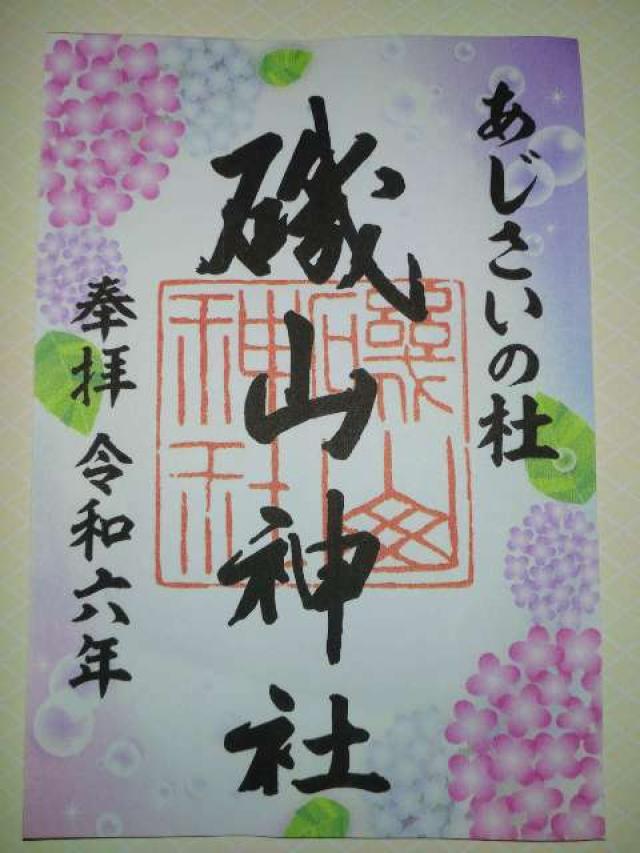 あじさいの杜
磯山神社
奉拝 令和六年
磯山神社